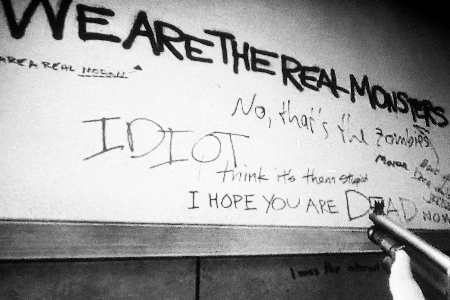 WE ARE THE REAL MONSTERS
AREA REAL
No, that's the zombies
IDIOT
I think it's them stupid
I HOPE YOU ARE DEAD NOW
I miss the internet